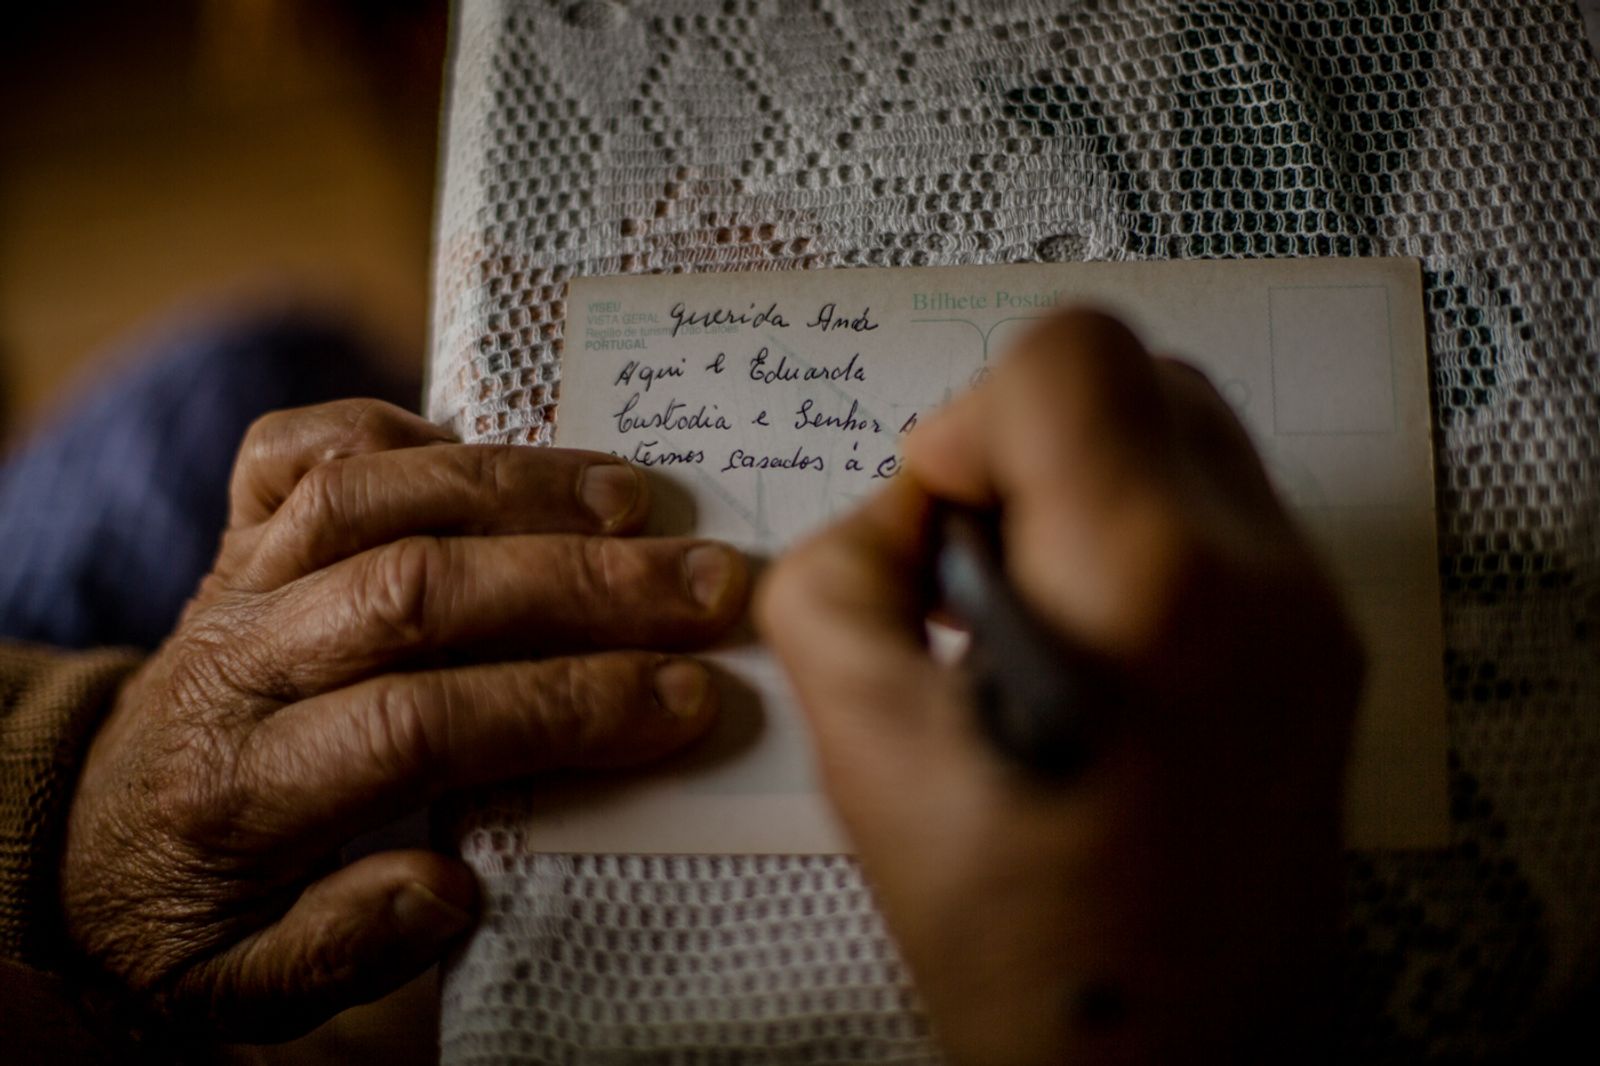 VISEU
VISTA GERAL
Região de turismo Dão Lafões
PORTUGAL
Bilhete Postal
Querida Aná
Aqui é Eduarda
Custodia e Senhor
casados à